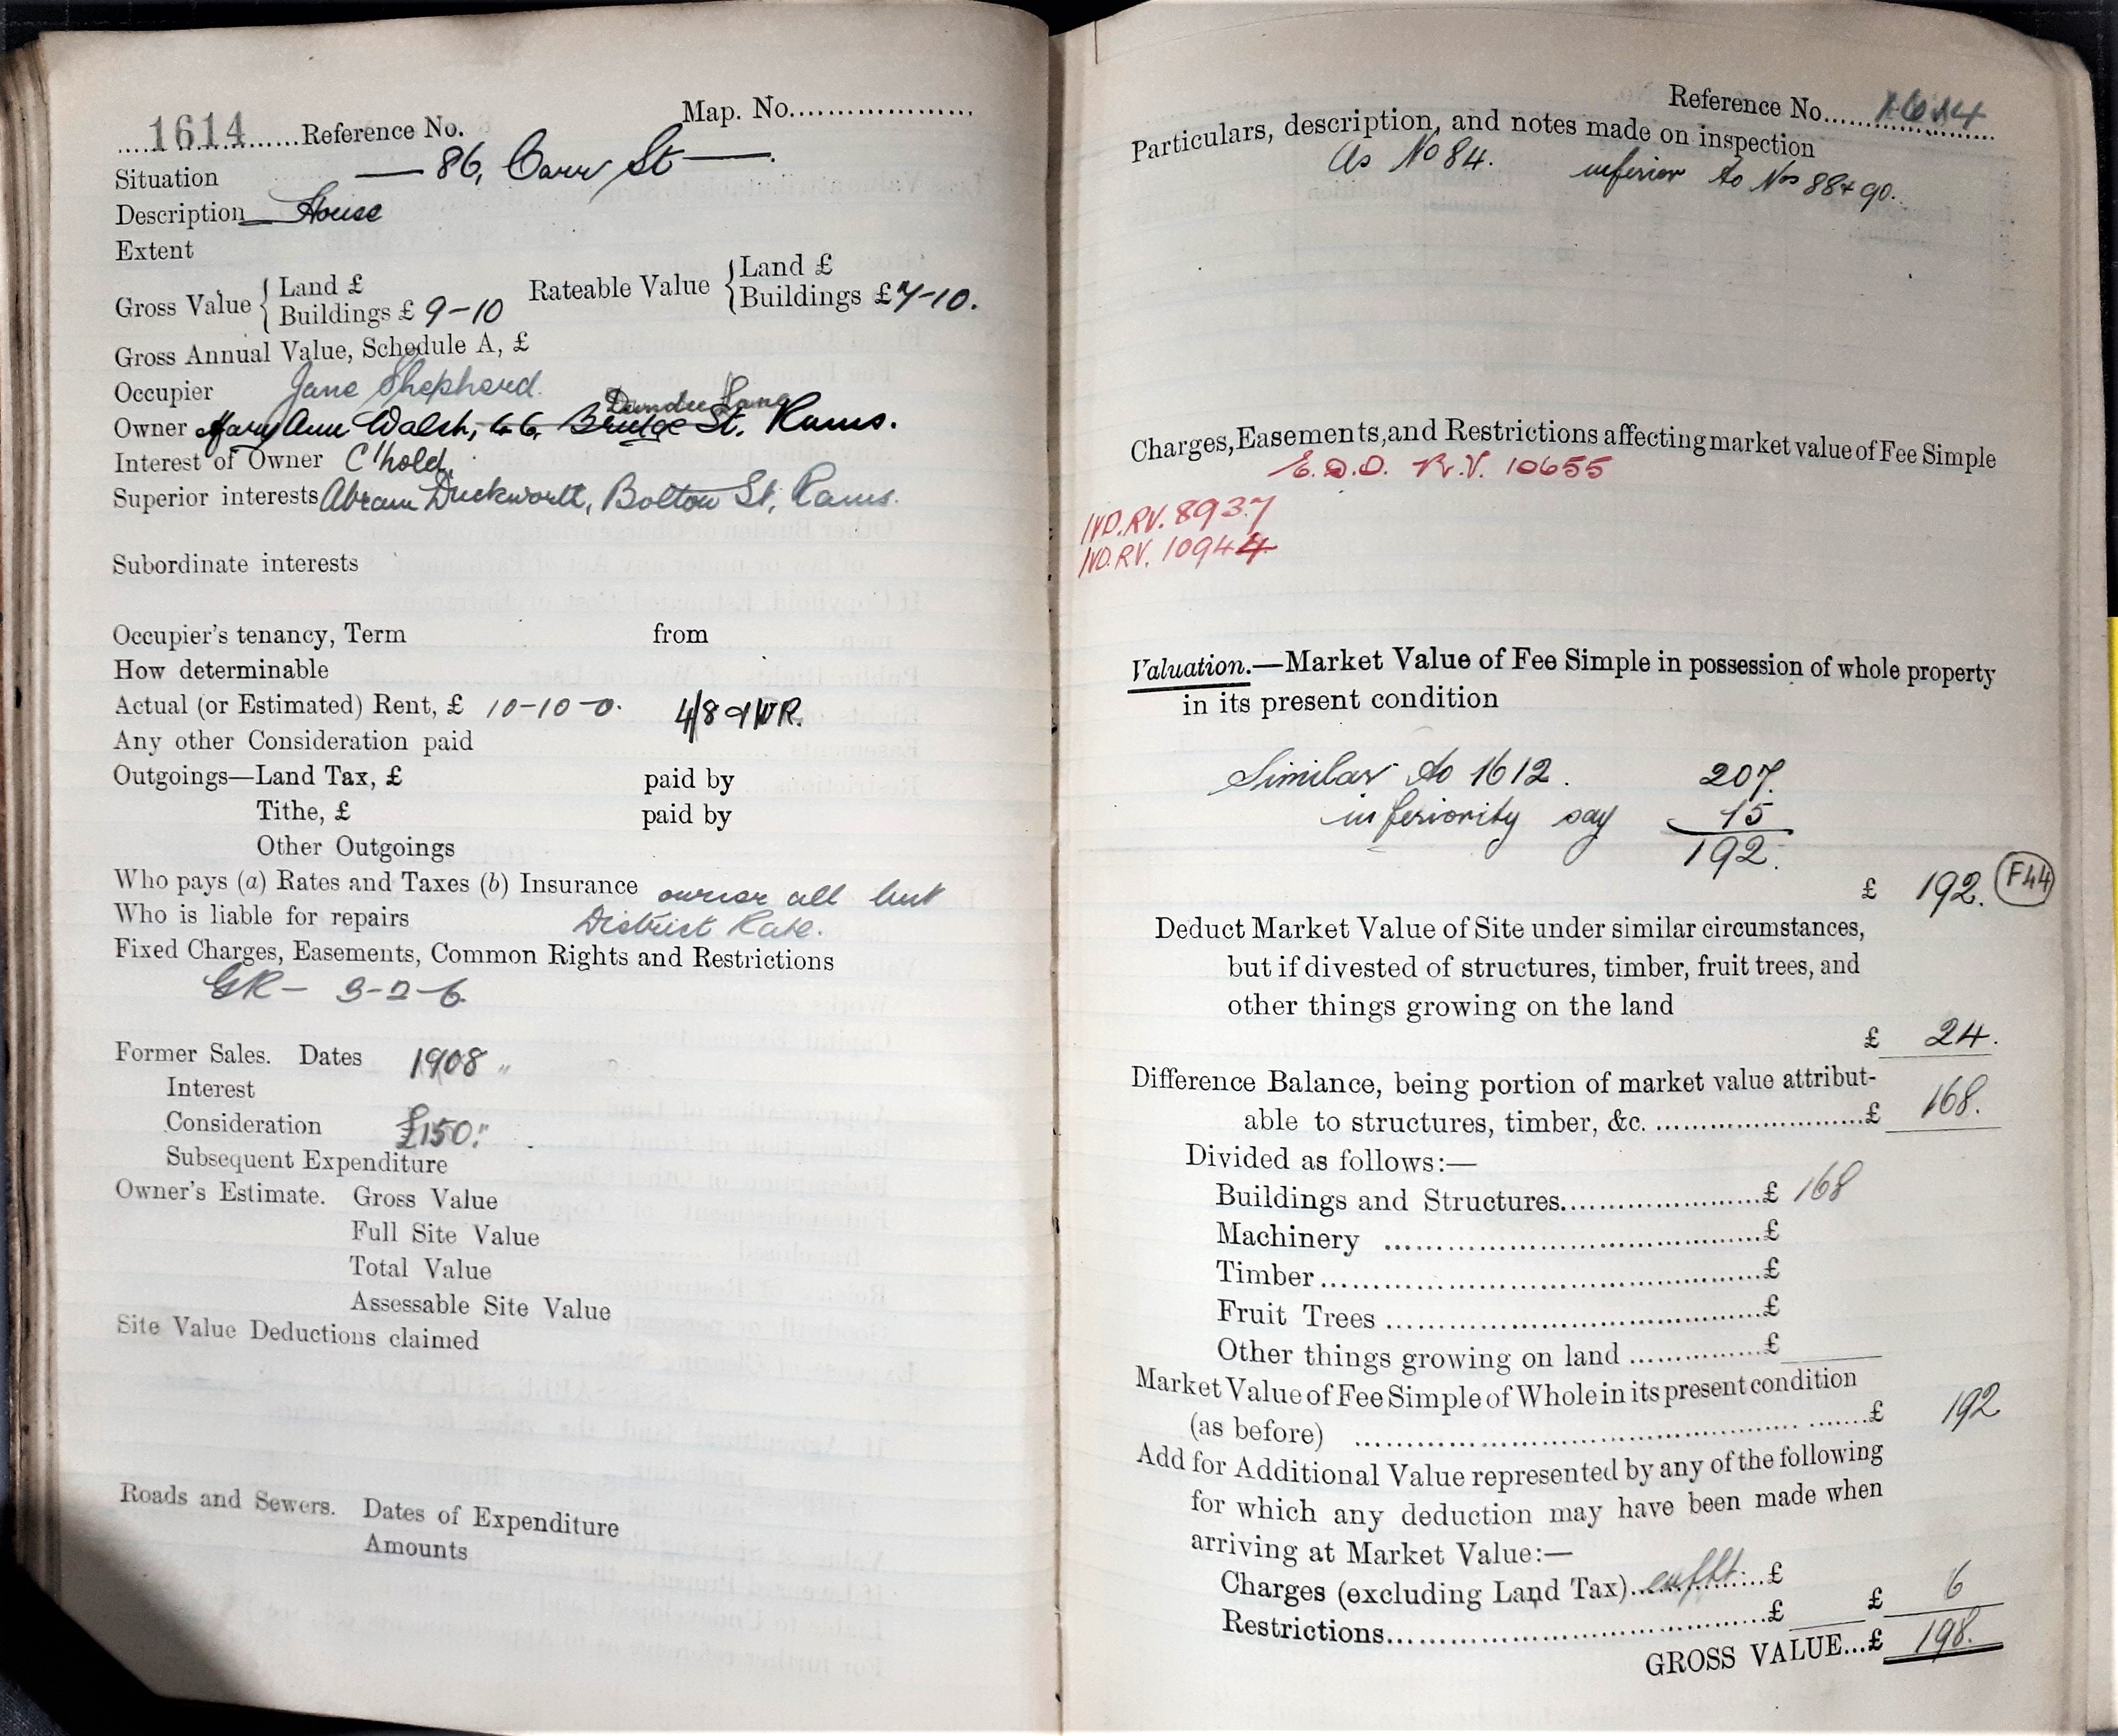 1614 Reference No. Map. No.
Situation — 86, Carr St —.
Description House
Extent
Gross Value { Land £ Rateable Value { Land £
Buildings £ 9-10 Buildings £ 7-10.
Gross Annual Value, Schedule A, £
Occupier Jane Shepherd.
Dundee Lane
Owner Mary Ann Walsh, 66, Bridge St. Rams.
Interest of Owner C'hold.
Superior interests Abram Duckworth, Bolton St, Rams.
Subordinate interests
Occupier's tenancy, Term from
How determinable
Actual (or Estimated) Rent, £ 10-10-0. 4/8 WR.
Any other Consideration paid
Outgoings—Land Tax, £ paid by
Tithe, £ paid by
Other Outgoings
Who pays (a) Rates and Taxes (b) Insurance owner all but
Who is liable for repairs District Rate.
Fixed Charges, Easements, Common Rights and Restrictions
GR - 3-2-6
Former Sales. Dates 1908 "
Interest
Consideration £150."
Subsequent Expenditure
Owner's Estimate. Gross Value
Full Site Value
Total Value
Assessable Site Value
Site Value Deductions claimed
Roads and Sewers. Dates of Expenditure
Amounts
Reference No. 1614
Particulars, description, and notes made on inspection
As No 84. inferior to Nos 88 + 90.
Charges, Easements, and Restrictions affecting market value of Fee Simple
E.D.D. R.V. 10655
IVD.RV. 8937
IVD.RV. 10944
Valuation.—Market Value of Fee Simple in possession of whole property
in its present condition
Similar to 1612. 207.
inferiority say 15
192.
£ 192. F44
Deduct Market Value of Site under similar circumstances,
but if divested of structures, timber, fruit trees, and
other things growing on the land
£ 24.
Difference Balance, being portion of market value attribut-
able to structures, timber, &c. £ 168.
Divided as follows:—
Buildings and Structures £ 168
Machinery £
Timber £
Fruit Trees £
Other things growing on land £
Market Value of Fee Simple of Whole in its present condition
(as before) £ 192
Add for Additional Value represented by any of the following
for which any deduction may have been made when
arriving at Market Value:—
Charges (excluding Land Tax) enfft. £
Restrictions £ £ 6
GROSS VALUE...£ 198.